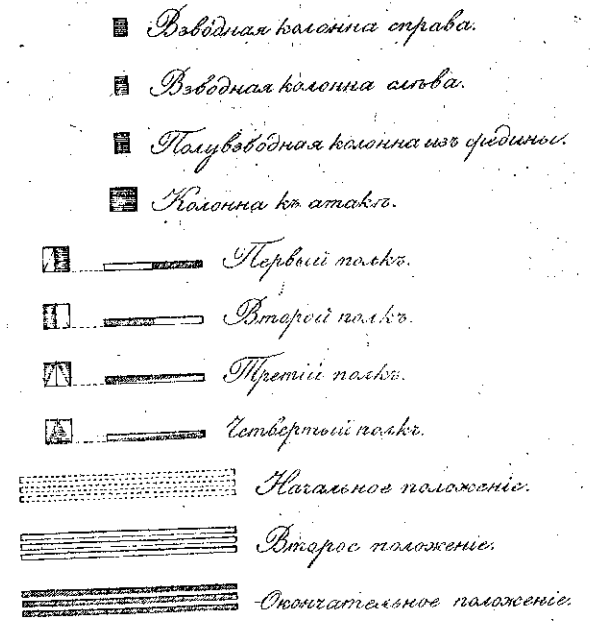 Взводная колонна справа.
Взводная колонна слѣва.
Полувзводная колонна изъ средины.
Колонна къ атакѣ.
Первый полкъ.
Второй полкъ.
Третій полкъ.
Четвертый полкъ.
Начальное положеніе.
Второе положеніе.
Окончательное положеніе.